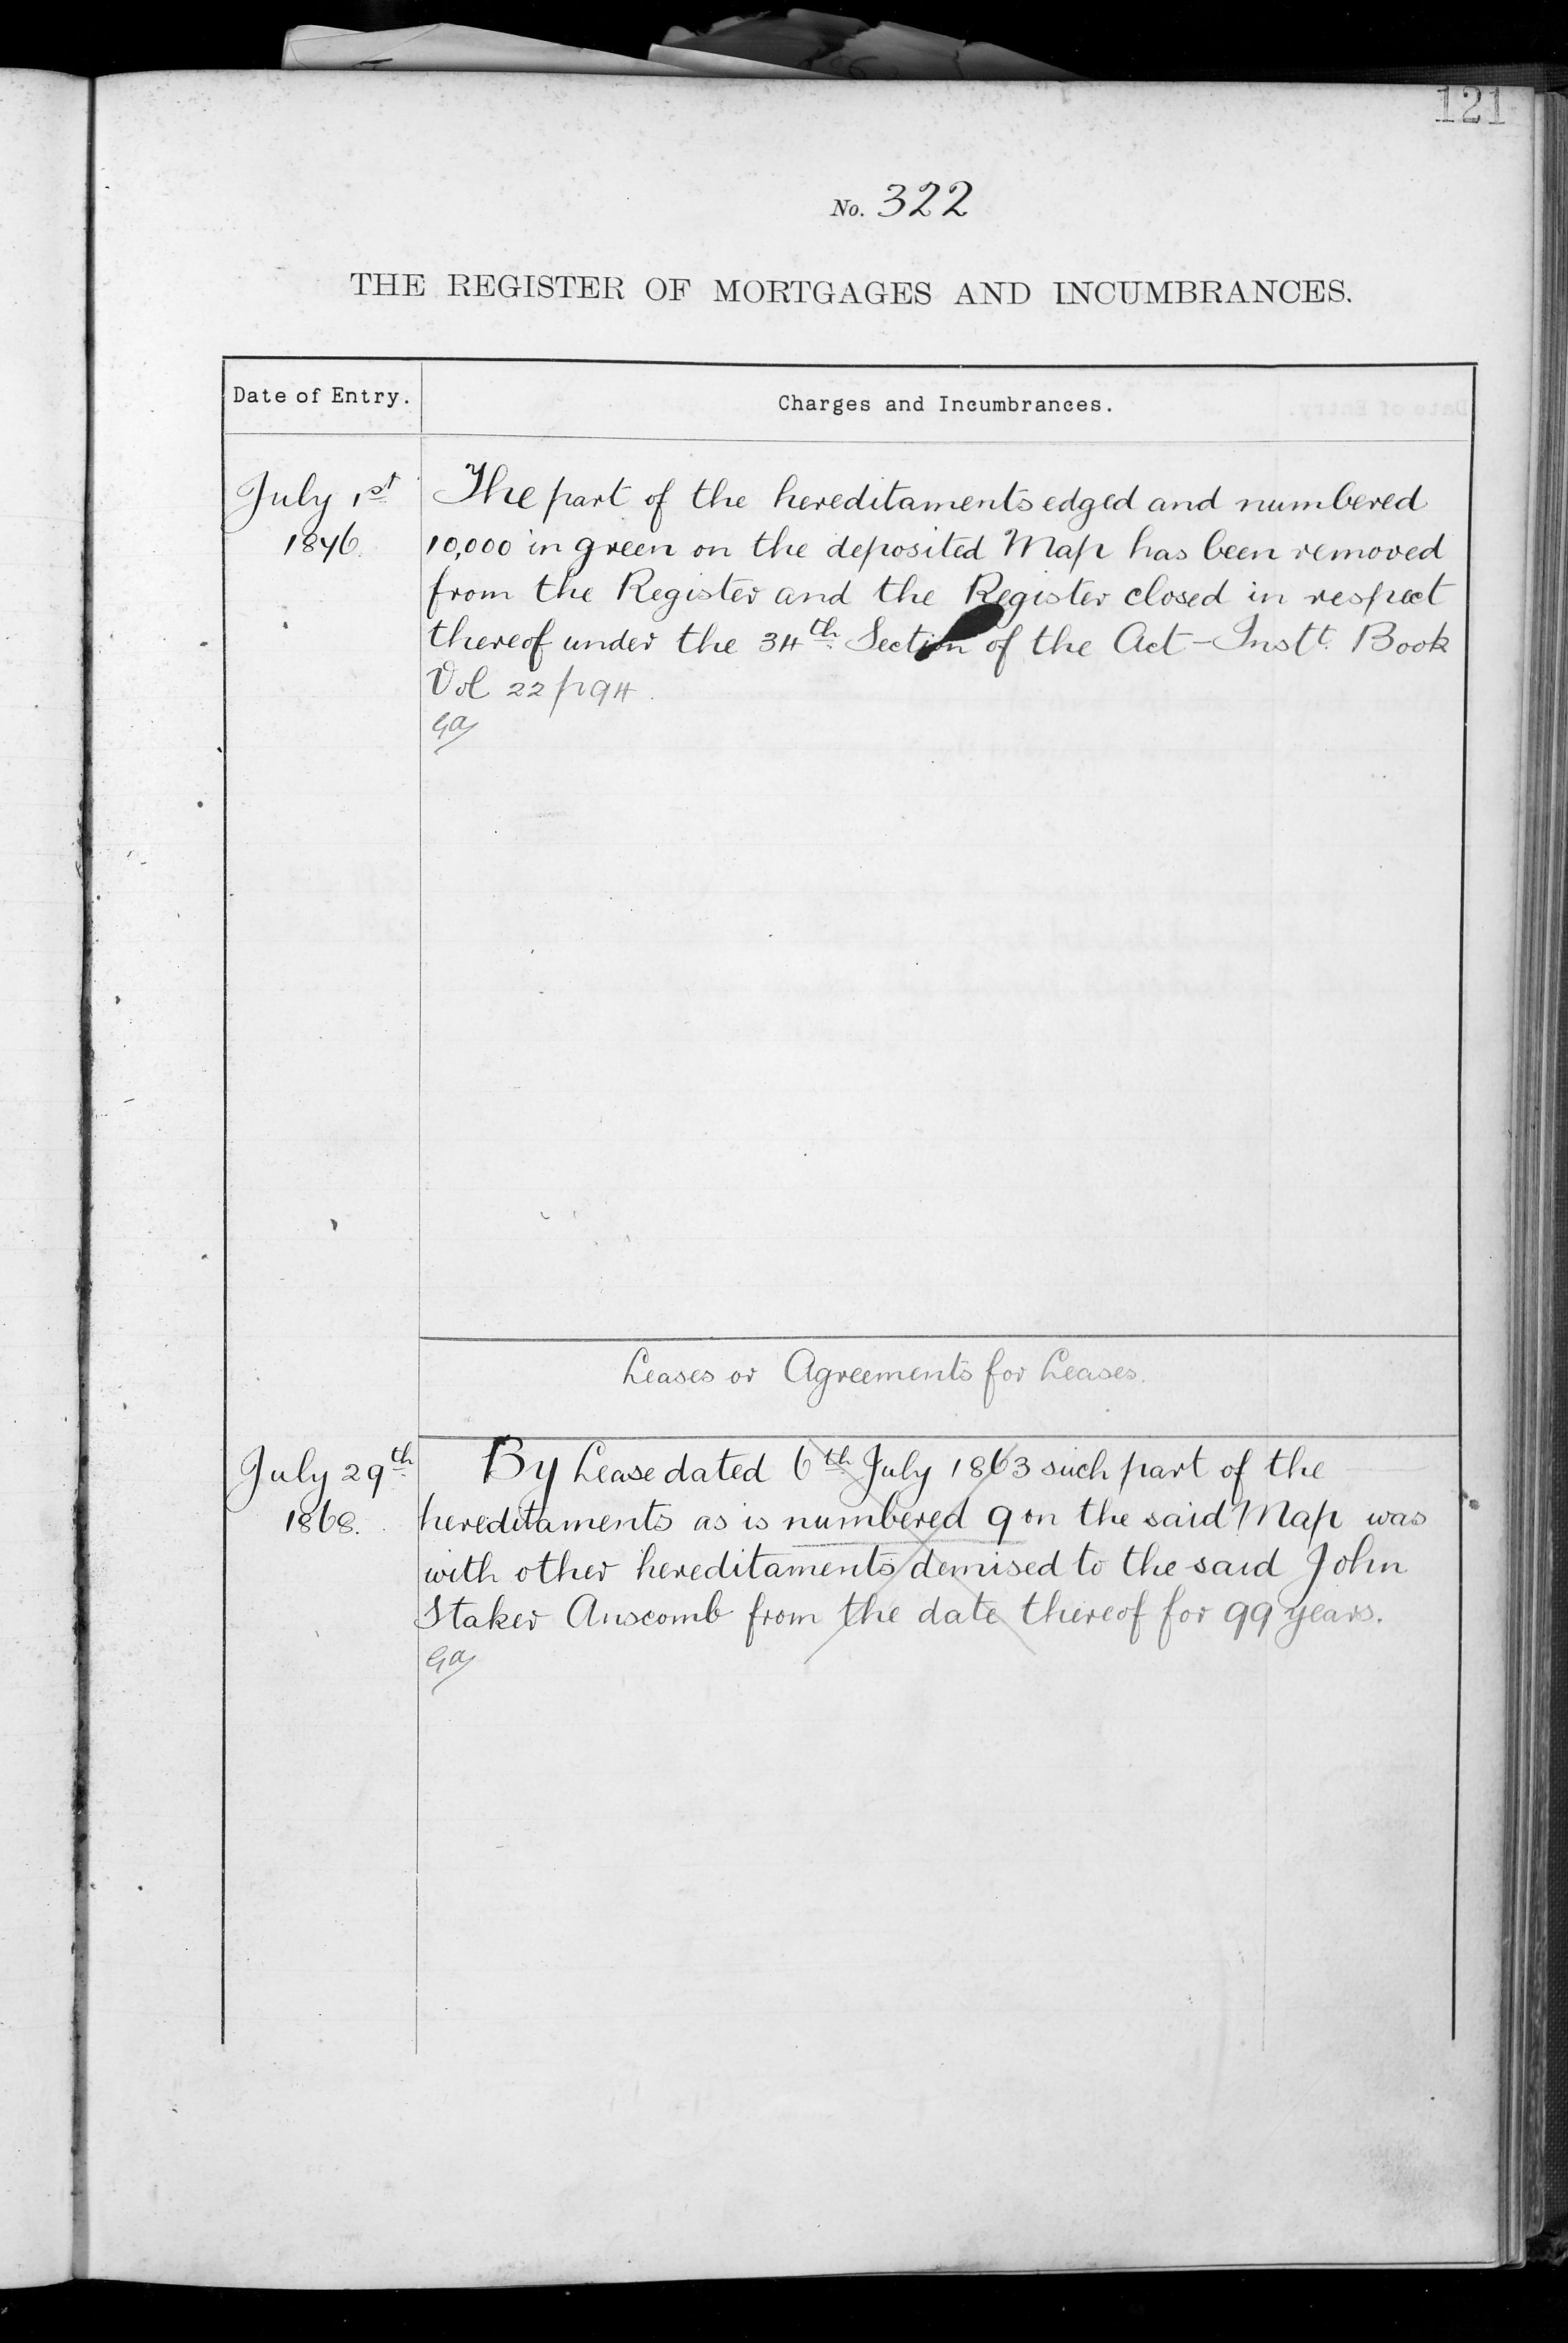 121
No. 322
THE REGISTER OF MORTGAGES AND INCUMBRANCES.
Date of Entry.
Charges and Incumbrances.
July 1st
1876.
The part of the hereditaments edged and numbered
10,000 in green on the deposited Map has been removed
from the Register and the Register closed in respect
thereof under the 34th Section of the Act - Instt. Book
Vol 22 p 94.
Leases or Agreements for Leases.
July 29th
1868.
By Lease dated 6th July 1863 such part of the
hereditaments as is numbered 9 on the said Map was
with other hereditaments demised to the said John
Staker Auscomb from the date thereof for 99 years.